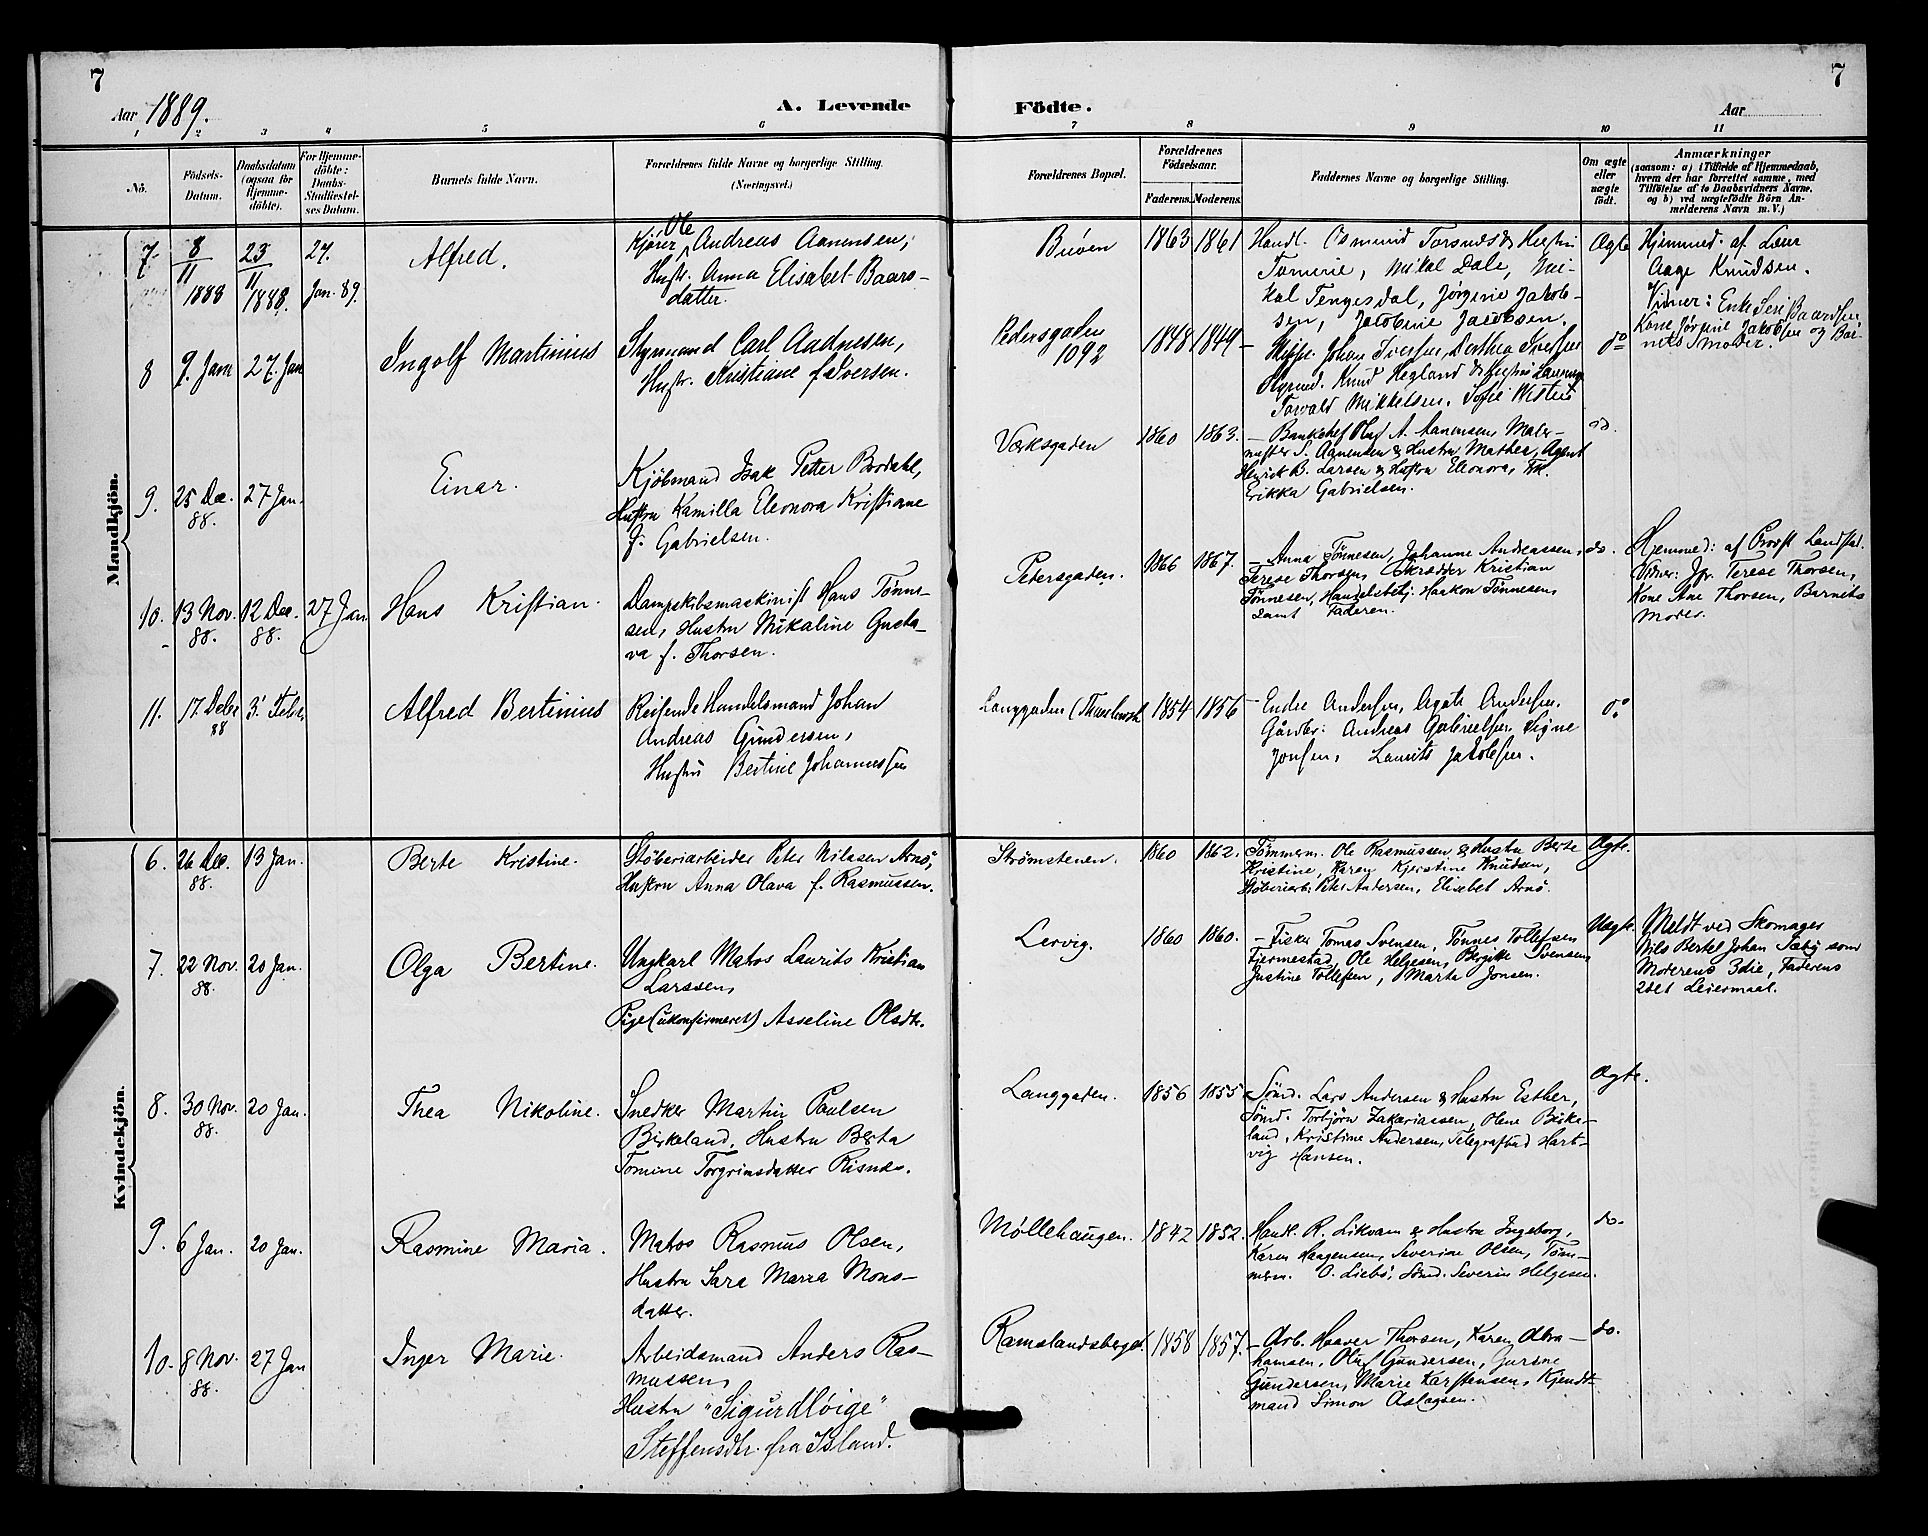 7
7
Aar 1889.
A. Levende
Födte.
Aar
1 2 3 4 5 6 7 8 9 10 11
No.
Födsels-
Datum.
Daabsdatum
(ogsaa for
Hjemme-
döbte).
For Hjemme-
döbte:
Daabs-
Stadfæstel-
ses Datum.
Barnets fulde Navn.
Forældrenes fulde Navne og borgerlige Stilling.
(Næringsvei.)
Forældrenes Bopæl.
Forældrenes
Födselsaar.
Faderens.
Moderens.
Faddernes Navne og borgerlige Stilling.
Om ægte
eller
uægte
födt.
Anmærkninger
(saasom: a) i Tilfælde af Hjemmedaab,
hvem der har forrettet samme, med
Tilföielse af to Daabsvidners Navne.
og b) ved uægtefödte Börn An-
melderens Navn m. V.)
Mandkjön.
7.
8
11
1888
23
11
1888.
27.
Jan. 89.
Alfred.
Kjører Ole Andreas Aanensen,
Hustr. Anna Elisabet Baars-
datter.
Buøen
1863
1861
Handl. Osmund Torsnes & Hustru
Tomine, Mikal Dale, Mi-
kal Tengesdal, Jørgine Jakob-
sen, Jacobine Jacobsen.
Ægte
Hjemmed. af Lær
Aage Knudsen.
Vidner: Enke Seri Baardsen
Kone Jørgine Jakobsen og Bar-
nets Moder.
8
9. Janr
27. Jan
Ingolf Martinius
Styrmand Carl Aadnesen,
Hustr. Kristiane f. Iversen.
Pedersgaden
1092
1848
1849
Skipp. Johan Iversen, Dorthea Iversen
Styrmd. Knud Hegland & Hustru
Torvald Mikkelsen. Sofie
do
9.
25 Dec.
88.
27 Jan.
Einar.
Kjöbmand Isak Petter Brodahl,
Hustru Kamilla Eleonora Kristiane
f. Gabrielsen.
Værksgaden
1860
1863.
– Bankchef Oluf A. Aanensen, Maler-
mester S. Aanensen & Hustru Mathea, Agent
Henrik B. Larsen & Hustru Eleonora, Frk.
Erikka Gabrielsen.
do.
10.
13 Nov.
88.
12 Dec.
88.
27 Jan
Hans Kristian.
Dampskibsmaskinist Hans Tönne-
sen, Hustru Mikaline Gusta-
va f. Thorsen.
Petersgaden.
1866
1867.
– Anna Tönnesen, Johanne Andreassen,
Terese Thorsen, Skrædder Kristian
Tönnesen, Handelsbetj. Haakon Tönnesen,
samt Faderen.
do.
Hjemmed: af Provst Landstad.
Vidner: Jgr. Terese Thorsen,
Kone Ane Thorsen, Barnets
Moder.
11.
17. Decbr
88
3. Febr.
Alfred Bertinius
Reisende Handelsmand Johan
Andreas Gundersen,
Hustru Bertine Johannessen
Langgaden
1854
1856
– Endre Andersen, Agate Andersen.
Gårdbr: Andreas Gabrielsen, Signe
Jonsen, Laurits Jakobsen.
do
Kvindekjön.
6.
26 Dec.
88.
13 Jan.
Berte Kristine.
Støberiarbeider Peter Nilssen Arnö,
Hustru Anna Olava f. Rasmussen.
Strømstenen.
1860
1862.
Tømmerm. Ole Rasmussen & Hustru Berte
Kristine, Karen Kjerstine Knudsen,
Støberiarb. Peter Andersen, Elisabet Arnö.
Ægte.
7.
22 Nov.
88.
20 Jan.
Olga Bertine.
Ungkarl Matros Laurits Kristian
Larssen,
Pige (ukonfirmeret) Asseline Olsdtr.
Lervig.
1860
1860.
– Fisker Tomas Svensen, Tønnes Tollefsen
Fjermestad, Ole Helgesen, Birgitte Svensen
Justine Tollefsen, Marta Jonsen.
Uægte.
Meldt ved Skomager
Nils Bertel Johan som
Moderens 3die, Faderens
2det Leiermaal.
8.
30 Nov.
88.
20 Jan.
Thea Nikoline.
Snedker Martin Paulsen
Birkeland, Hustru Berta
Tomine Torgrimsdatter Risnes.
Langgaden.
1856
1855
– Sömd. Lars Andersen & Hustru Esther,
Sömd. Torbjörn Zakariassen, Olene Birke-
land, Kristine Andersen, Telegrafbud Hart-
vig Hansen.
Ægte.
9.
6 Jan.
20 Jan.
Rasmine Maria.
Matros Rasmus Olsen,
Hustru Sara Maria Mons-
datter.
Möllehaugen.
1842
1852.
Handl. R. Likvam & Hustru Ingeborg,
Karen Haagensen, Severine Olsen, Tøm-
merm. O. Liebö, Sömd. Severin Helgesen.
do.
10.
8 Nov.
88.
27 Jan
Inger Marie.
Arbeidsmand Anders Ras-
mussen,
Hustru "Sigurdløige"
Steffensdtr. fra Island.
Ramslandsberget.
1858
1857.
– Arb. Haaver Thorsen, Karen Abra-
hamsen, Oluf Gundersen, Gurine
Gundersen, Marie Karstensen, Kjendt-
mand Simon Aslagsen.
do.